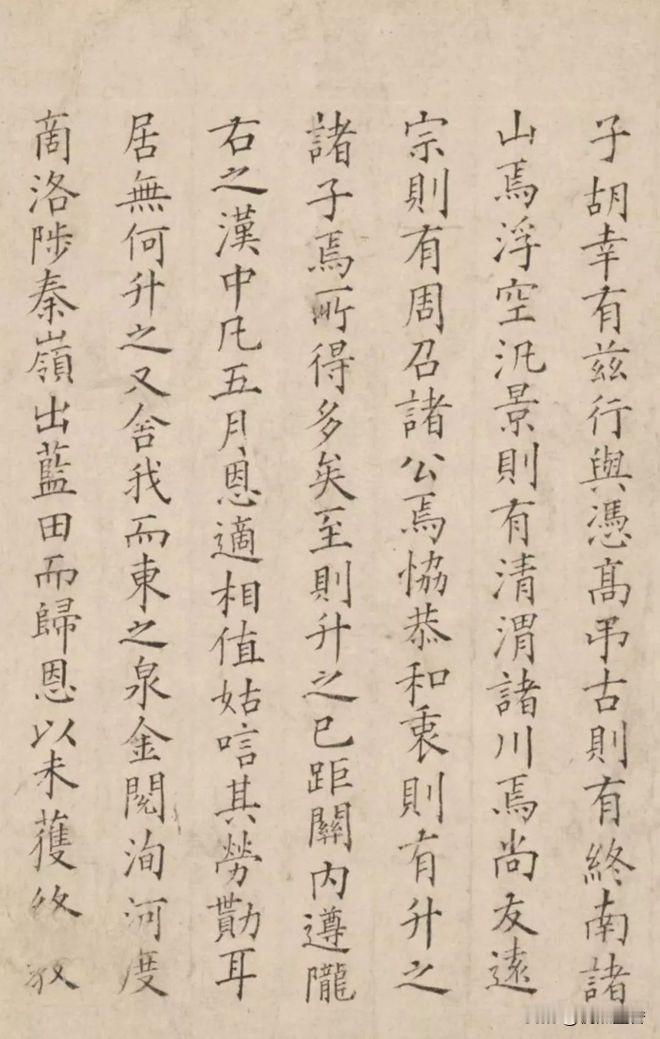 子胡幸有茲行與憑髙弔古則有終南諸
山焉浮空汎景則有清渭諸川焉尚友遠
宗則有周召諸公焉恊恭和衷則有升之
諸子焉所得多矣至則升之已距關内遵隴
右之漢中凡五月恩適相值姑唁其勞勩耳
居無何升之又舍我而東之泉金閱洵河度
商洛陟秦嶺出藍田而歸恩以未獲